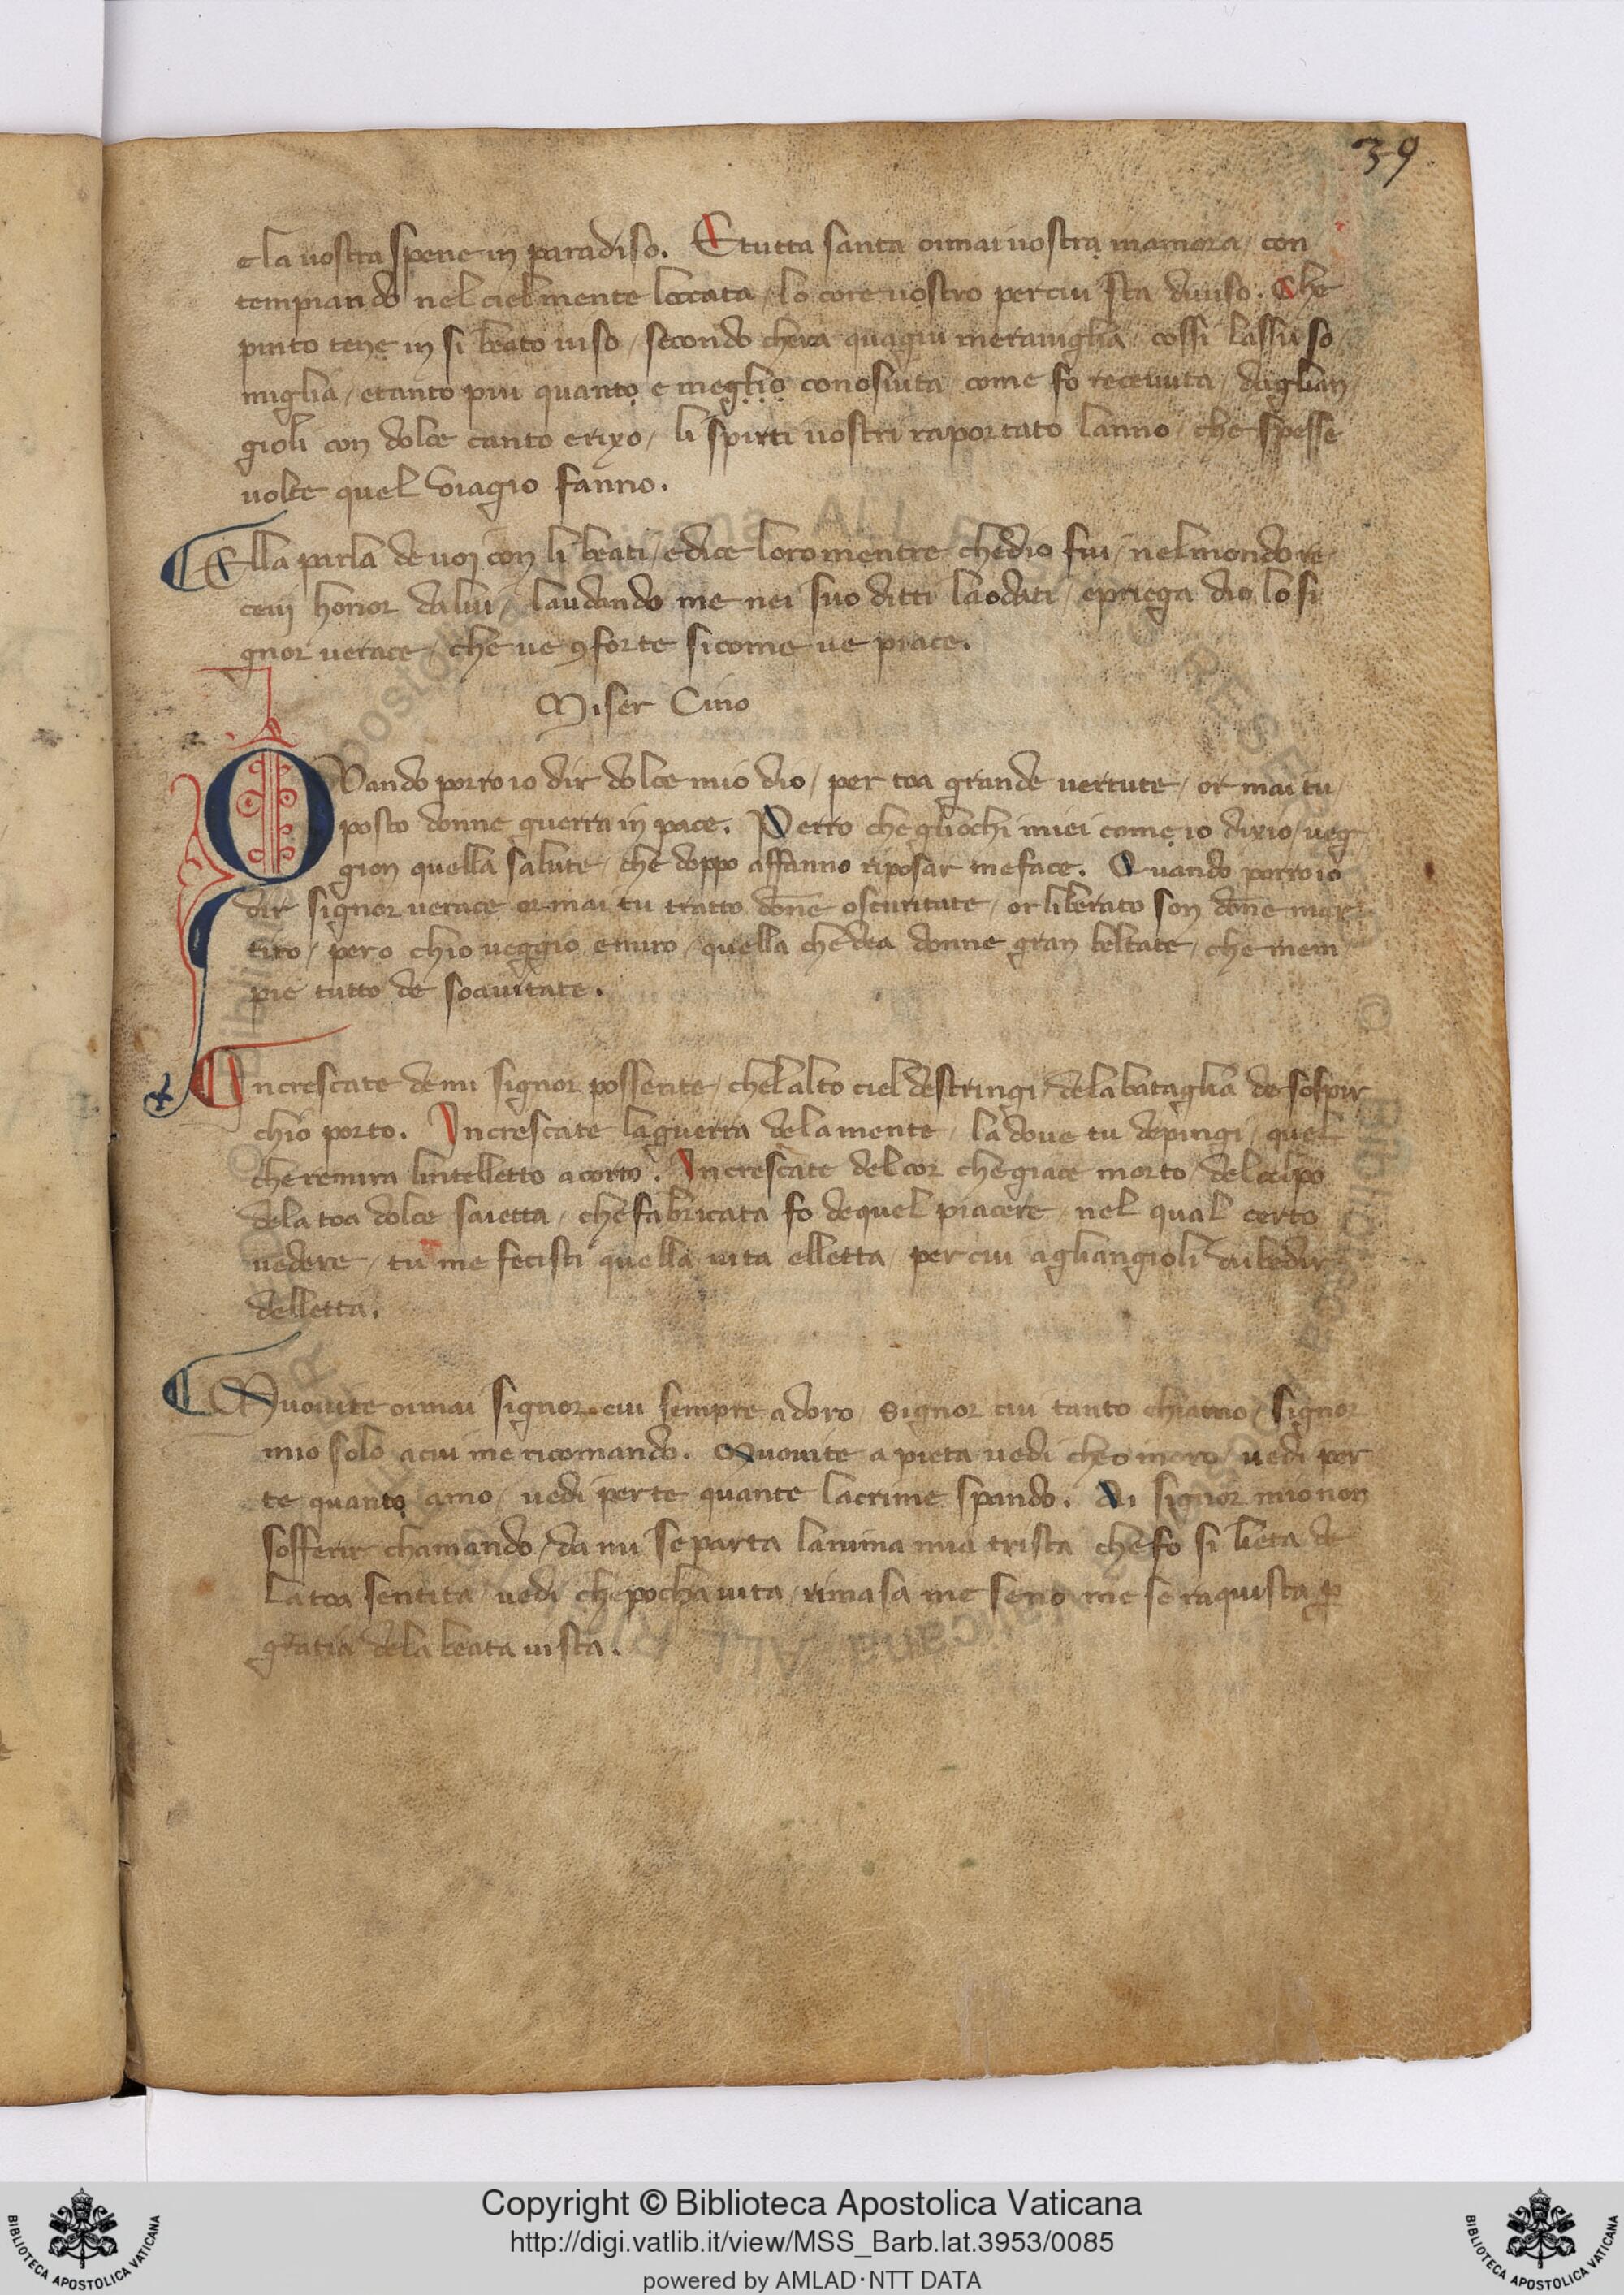 39
e la uostra spene in paradiso. Etutta santa oimai uostra memora / con
tempiando nel ciel mente leccata / lo core uostro percui sta diuiso. Che
pinto tene in si beato uiso / secondo chera quagiu merauiglia / cossi lassu so
miglia / etanto piu quanto e meglio conosiuta / come fo receuuta / daglian
gioli con dolce canto erixo / li spirti uostri raportato lanno / che spesse
uolte quel uiagio fanno.
Ella parla de uoi con li beati / edice loro mentre chedio fui / nelmondo re
ceui honor dalui / laudando me nei suo ditti laodati / epriega dio lo si
gnor uerace / che ue 9forte sicome ue piace.
Miser Cino
QVando porro io dir dolce mio dio / per toa grande uertute / or mai tu
posto donne guerra in pace. Perro che gliochi miei come io dixio / ueg
gion quella salute / che doppo affanno riposar meface. Quando porro io
dir signor uerace or mai tu tratto dōne oscuritate / or liberato son dōne mar
tiro / pero chio ueggio emiro / quella che dea donne gran beltate / che mem
pie tutto de soauitate.
Increscate demi signor possente / chelalto ciel destringi / dela bataglia de sospir
chio porto. Increscate la guerra dela mente / la doue tu depingi / quel
che remira lintelletto acorto. Increscate del cor che giace morto / del colpo
dela toa dolce saietta / che fabricata fo dequel piacere / nel qual certo
uedere / tu me fecisti quella uita elletta / per cui agliangioli di
delletta.
Muouite oimai signor cui sempre adoro / signor cui tanto chiamo / signor
mio solo acui me ricomando. Muouite a pieta uedi cheo moro / uedi per
te quanto amo / uedi perte quante lacrime spando. Ai signor mio non
sofferir chamando / da mi se parta lanima mia trista che fo si lieta de
la toa sentita / uedi che pocha uita / rimasa me seno me se raquista ꝑ
gratia dela beata uista.
Copyright © Biblioteca Apostolica Vaticana
http://digi.vatlib.it/view/MSS_Barb.lat.3953/0085
powered by AMLAD·NTT DATA
BIBLIOTECA APOSTOLICA VATICANA
BIBLIOTECA APOSTOLICA VATICANA